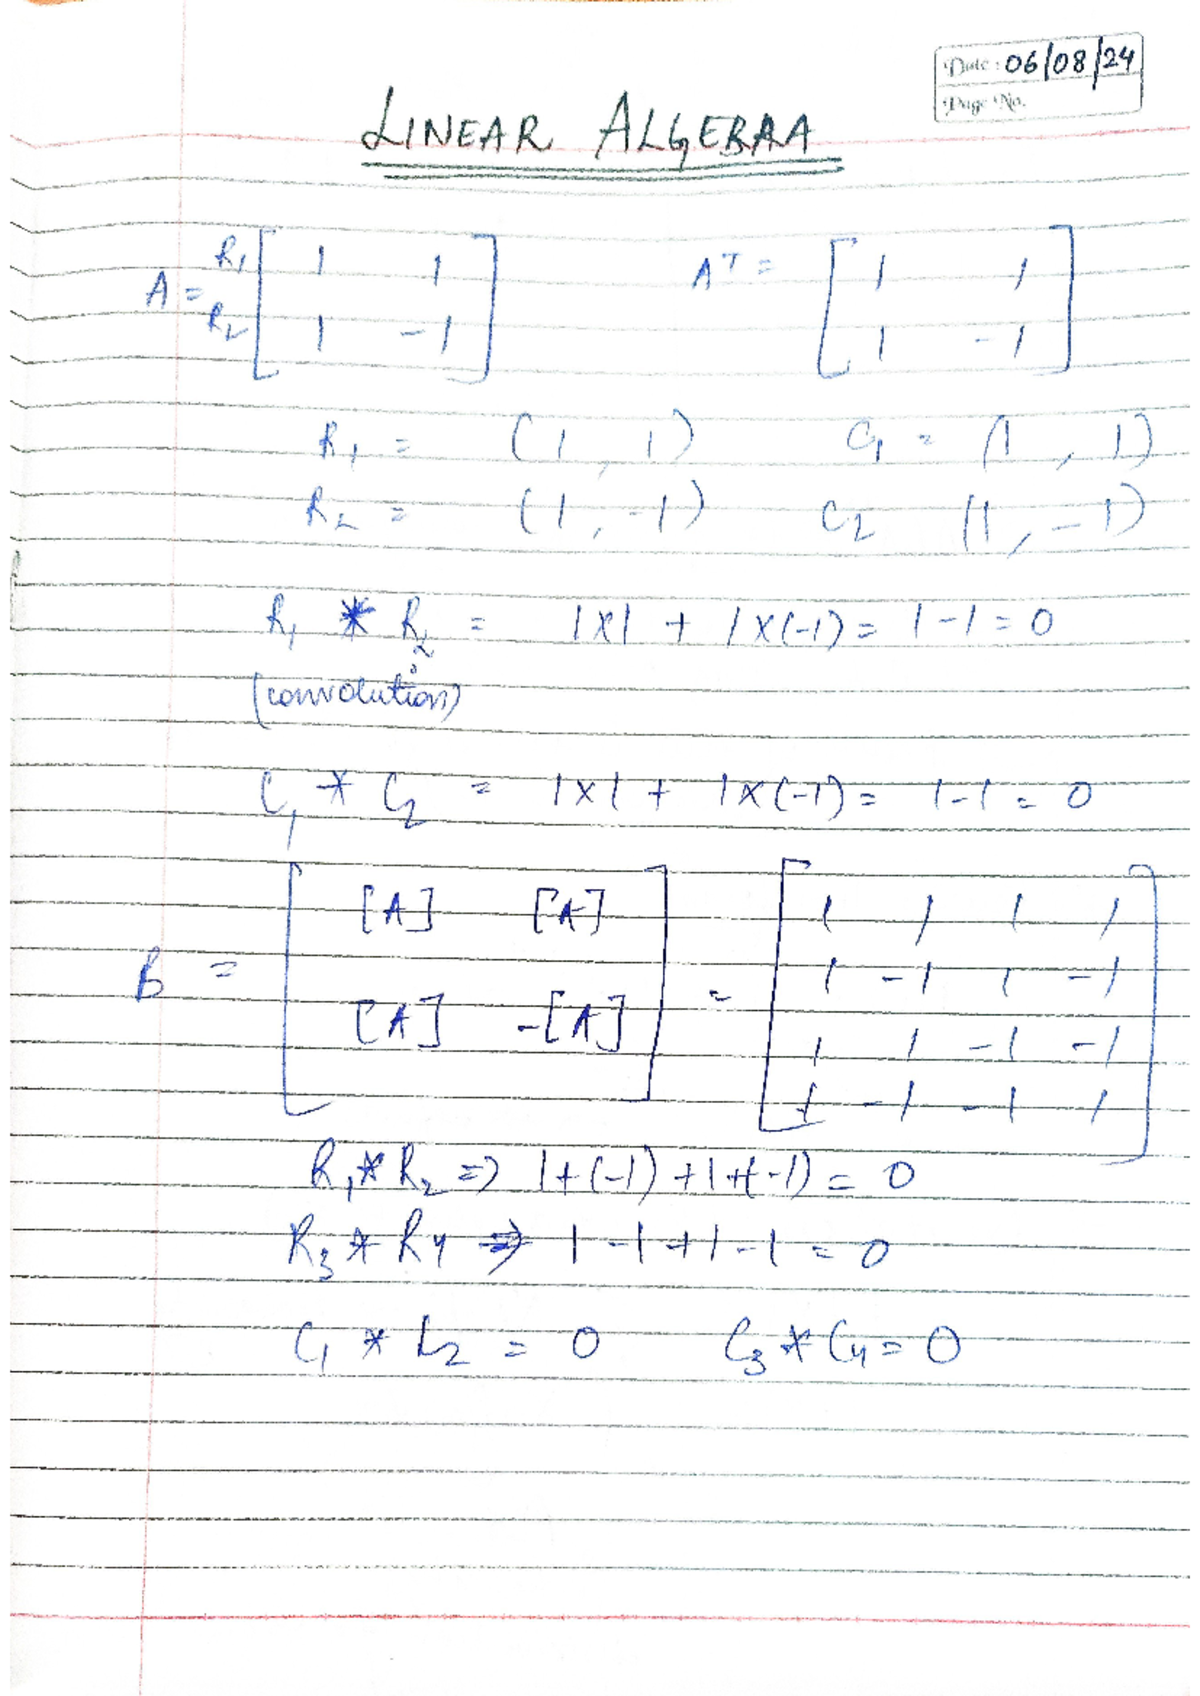 Date: 06/08/24
Page No.
LINEAR ALGEBRA
A = R1 [ 1 1 R2 1 -1 ] A^T = [ 1 1
1 -1 ]
R1 = (1, 1) C1 = (1, 1)
R2 = (1, -1) C2 (1, -1)
R1 * R2 = 1x1 + 1x(-1) = 1-1 = 0
(convolution)
C1 * C2 = 1x1 + 1x(-1) = 1-1 = 0
B = [ [A] [A] = [ 1 1 1 1
1 -1 1 -1
[A] -[A] ] 1 1 -1 -1
1 -1 -1 1 ]
R1 * R2 => 1+(-1)+1+(-1) = 0
R3 * R4 => 1-1+1-1 = 0
C1 * C2 = 0 C3 * C4 = 0